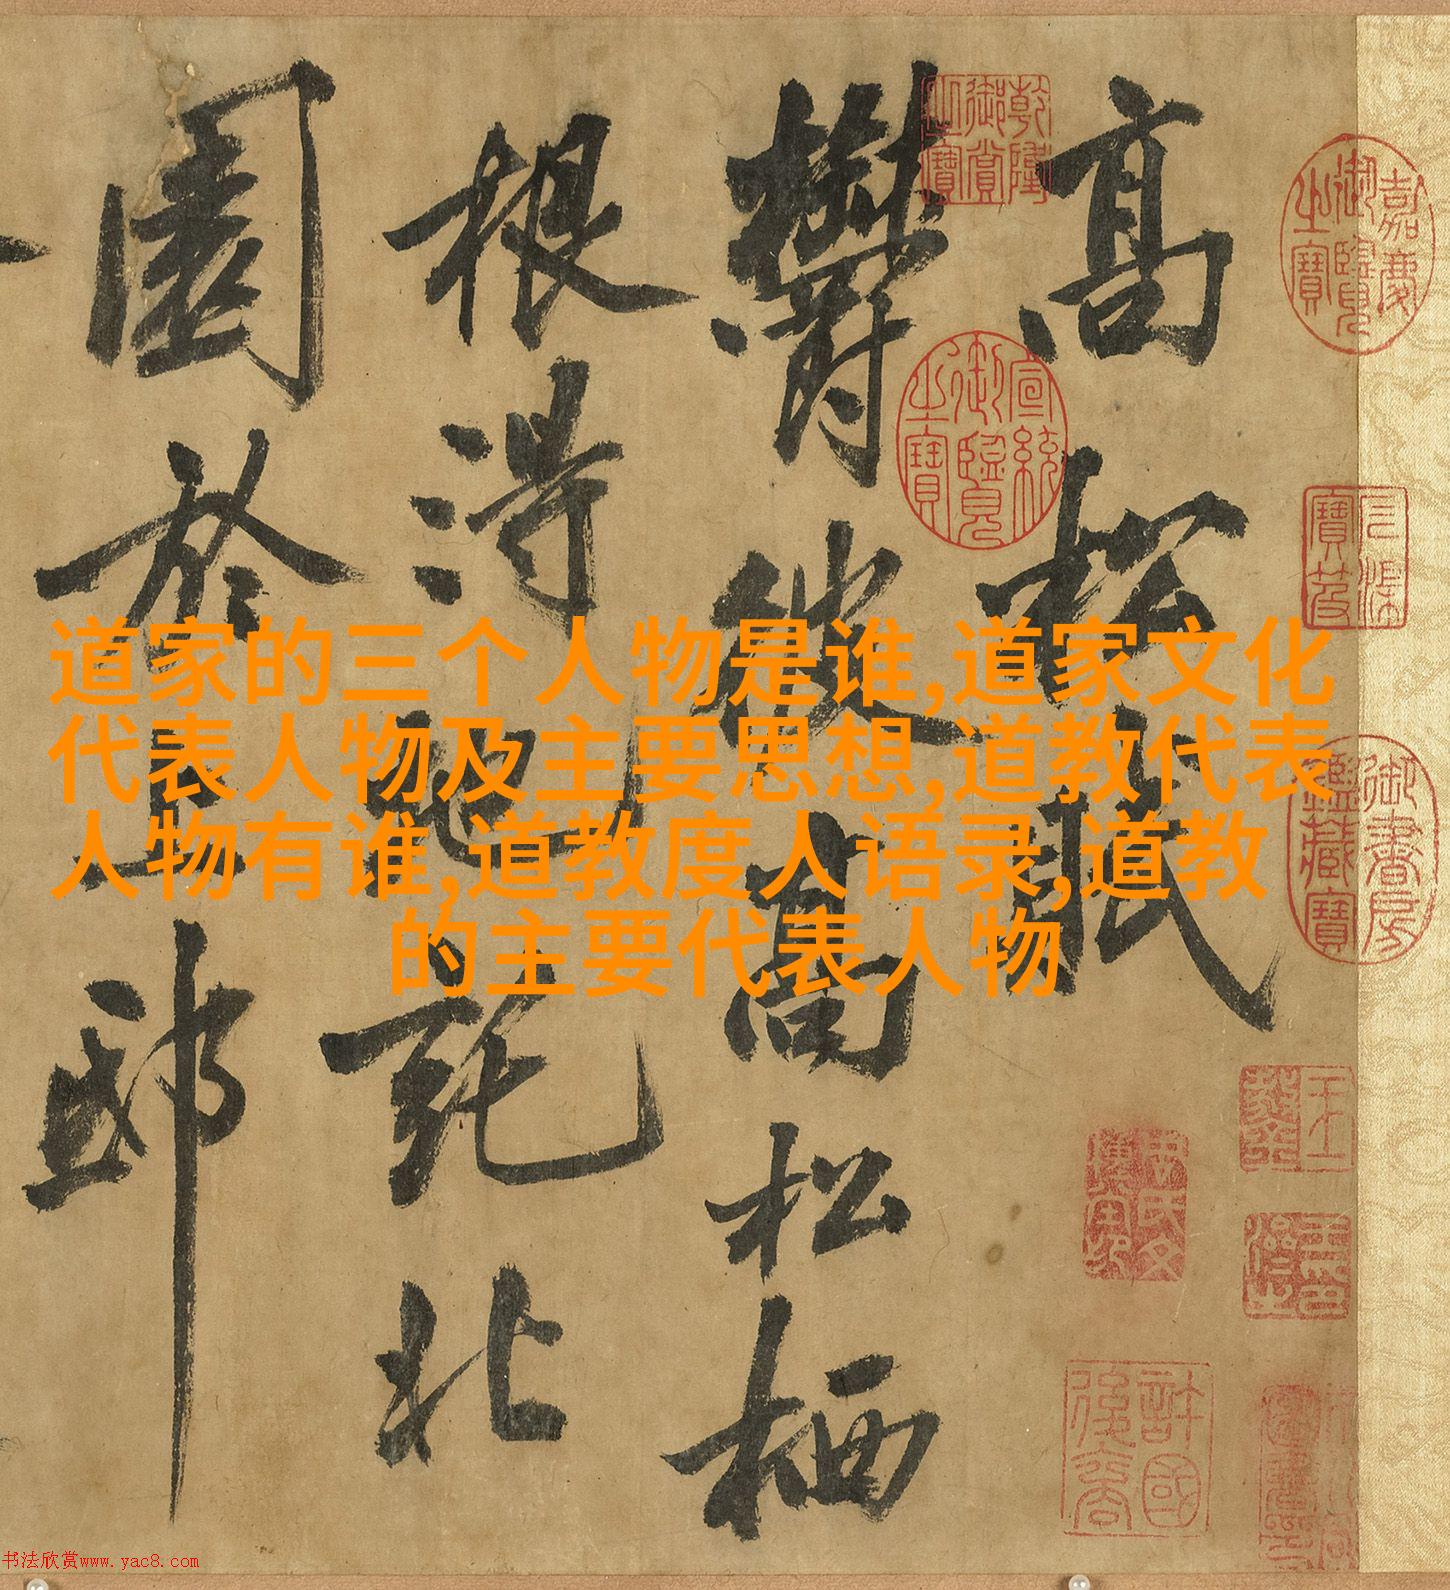 道家的三个人物是谁,道家文化
代表人物及主要思想,道教代表
人物有谁,道教度人语录,道教
的主要代表人物
高松賦
鬱彼高松栖
根得地託北
園於上邸
嘉慶御覽之寶
乾隆御賞之寶
宣統御覽之寶
石渠寶笈
御書房鑑藏寶
許國後裔
书法欣赏www.yac8.com